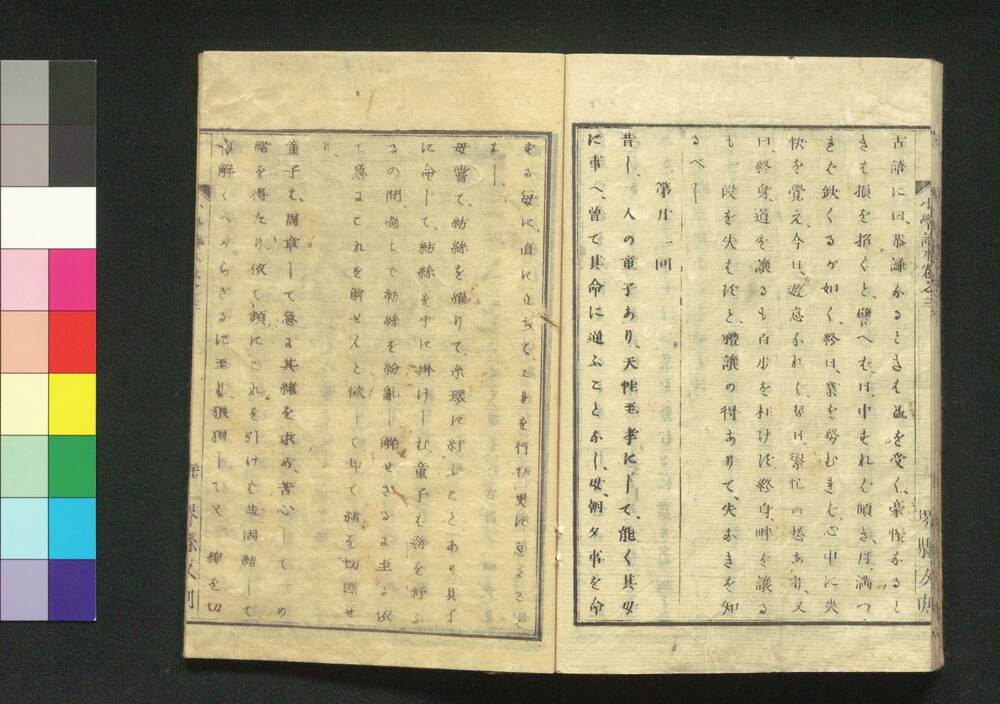 古語に曰恭謙なるときは益を受く、豪慢なると
きは損を招くと、譬へば、中すれば傾き、月、満つ
きば欠くるが如く、終日、業を勞むきば、心中に爽
快を覺え、今日、遊息すれば、明日、繁忙の患あり、又
曰、終身、道を讓るも百歩を枉けず、終身、畔を讓る
も一段を失はずと、禮讓の得ありて、失なきを知
るべし
第廿一回
昔し、一人の童子あり、天性至孝にして、能く其母
に事へ、曾て其命に違ふことなし、母、朝夕事を命
ずる毎に、直に立ちて、これを行ひ、更に怠ること
なし
母嘗て、紡絲を繰りて、糸環に紆ふことあり、其子
に命して、紡絲を手に掛けしむ、童子、絲を紆ふ
るの間、過ちて紡絲を紛亂し、解せざるに至る、依
て急にこれを解せんと欲して、却て、緒を切斷せ
り、
童子は、周章して、急に其緒を求め、苦心して、の
緒を得たり、依て頻にこれを引けば、益固結して
解くべからざるに至り、狼狽して又、緒を切
小學讀本卷之三
堺縣文則